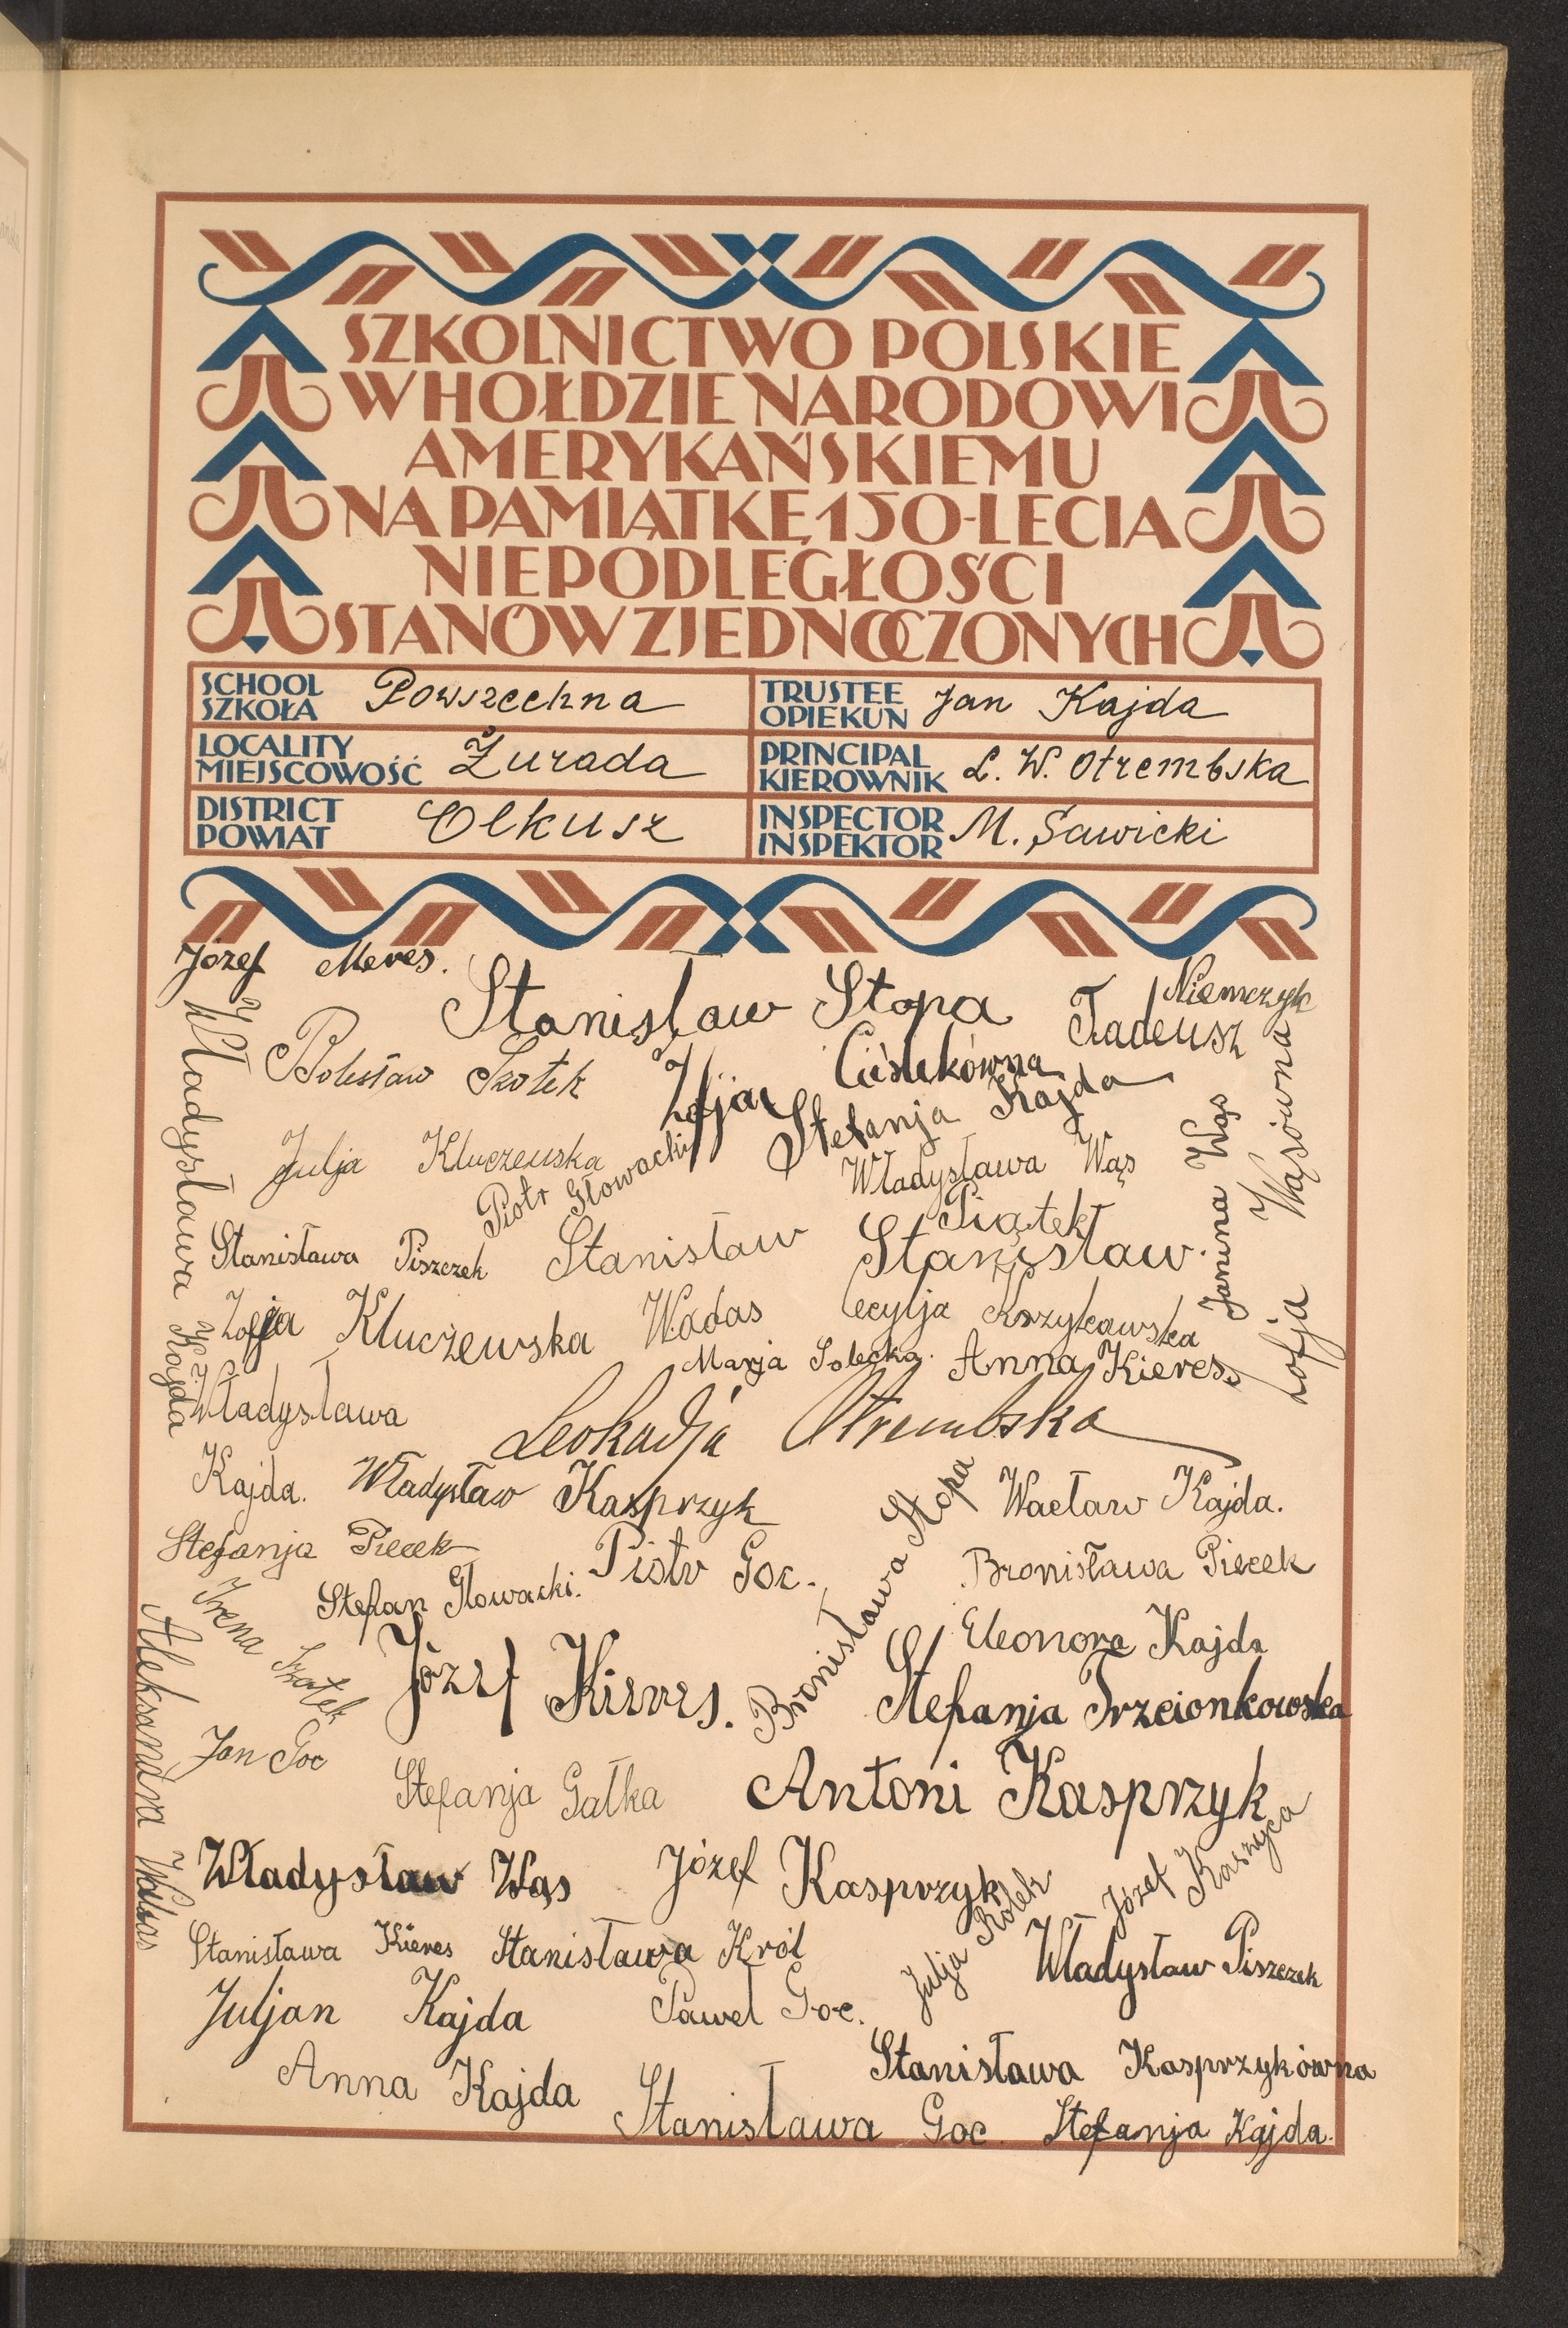 SZKOLNICTWO POLSKIE
W HOŁDZIE NARODOWI
AMERYKAŃSKIEMU
NA PAMIĄTKĘ 150-LECIA
NIEPODLEGŁOŚCI
STANÓW ZJEDNOCZONYCH
SCHOOL
SZKOŁA
Powszechna
TRUSTEE
OPIEKUN
Jan Kajda
LOCALITY
MIEJSCOWOŚĆ
Żurada
PRINCIPAL
KIEROWNIK
L. W. Otrembska
DISTRICT
POWIAT
Olkusz
INSPECTOR
INSPEKTOR
M. Sawicki
Józef Meres.
Stanisław Stopa
Niemczyk
Tadeusz
Bolesław Szotek
Zofja Cieślikówna
Stefanja Kajda
Władysława Kajda
Julja Kluczewska
Piotr Głowacki
Władysława Wąs
Janina Wąs
Zofja Wąsówna
Stanisława Piszczek
Stanisław Wadas
Piątek
Stanisław.
Zofja Kluczewska
Cecylja Krzykawska
Marja Solecka.
Anna Kieres
Władysława
Kajda.
Leokadja Otrembska
Władysław Kasprzyk
Bronisława Stopa
Wacław Kajda.
Stefanja Piecek
Piotr Goc.
Bronisława Piecek
Stefan Głowacki.
Irena Szotek
Eleonora Kajda
Aleksandra Wadas
Józef Kieres.
Stefanja Trzcionkowska
Jan Goc
Stefanja Gałka
Antoni Kasprzyk
Władysław Wąs
Józef Kasprzyk
Julja Rolek
Józef Kaszyca
Stanisława Kieres
Stanisława Król
Władysław Piszczek
Juljan Kajda
Paweł Goc.
Stanisława Kasprzykówna
Anna Kajda
Stanisława Goc.
Stefanja Kajda.